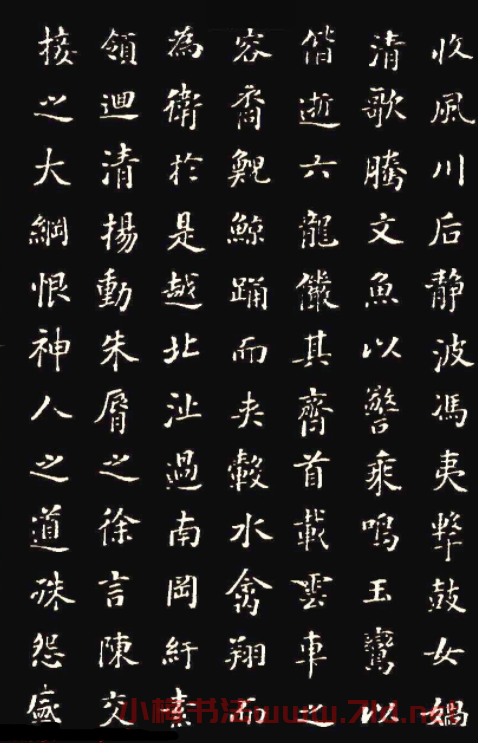 收風川后靜波馮夷擊鼓女媧
清歌騰文魚以警乘鳴玉鸞以
偕逝六龍儼其齊首載雲車之
容裔鯤鯨踊而夾轂水禽翔而
為衛於是越北沚過南岡紆素
領迴清揚動朱脣之徐言陳交
接之大綱恨神人之道殊怨盛